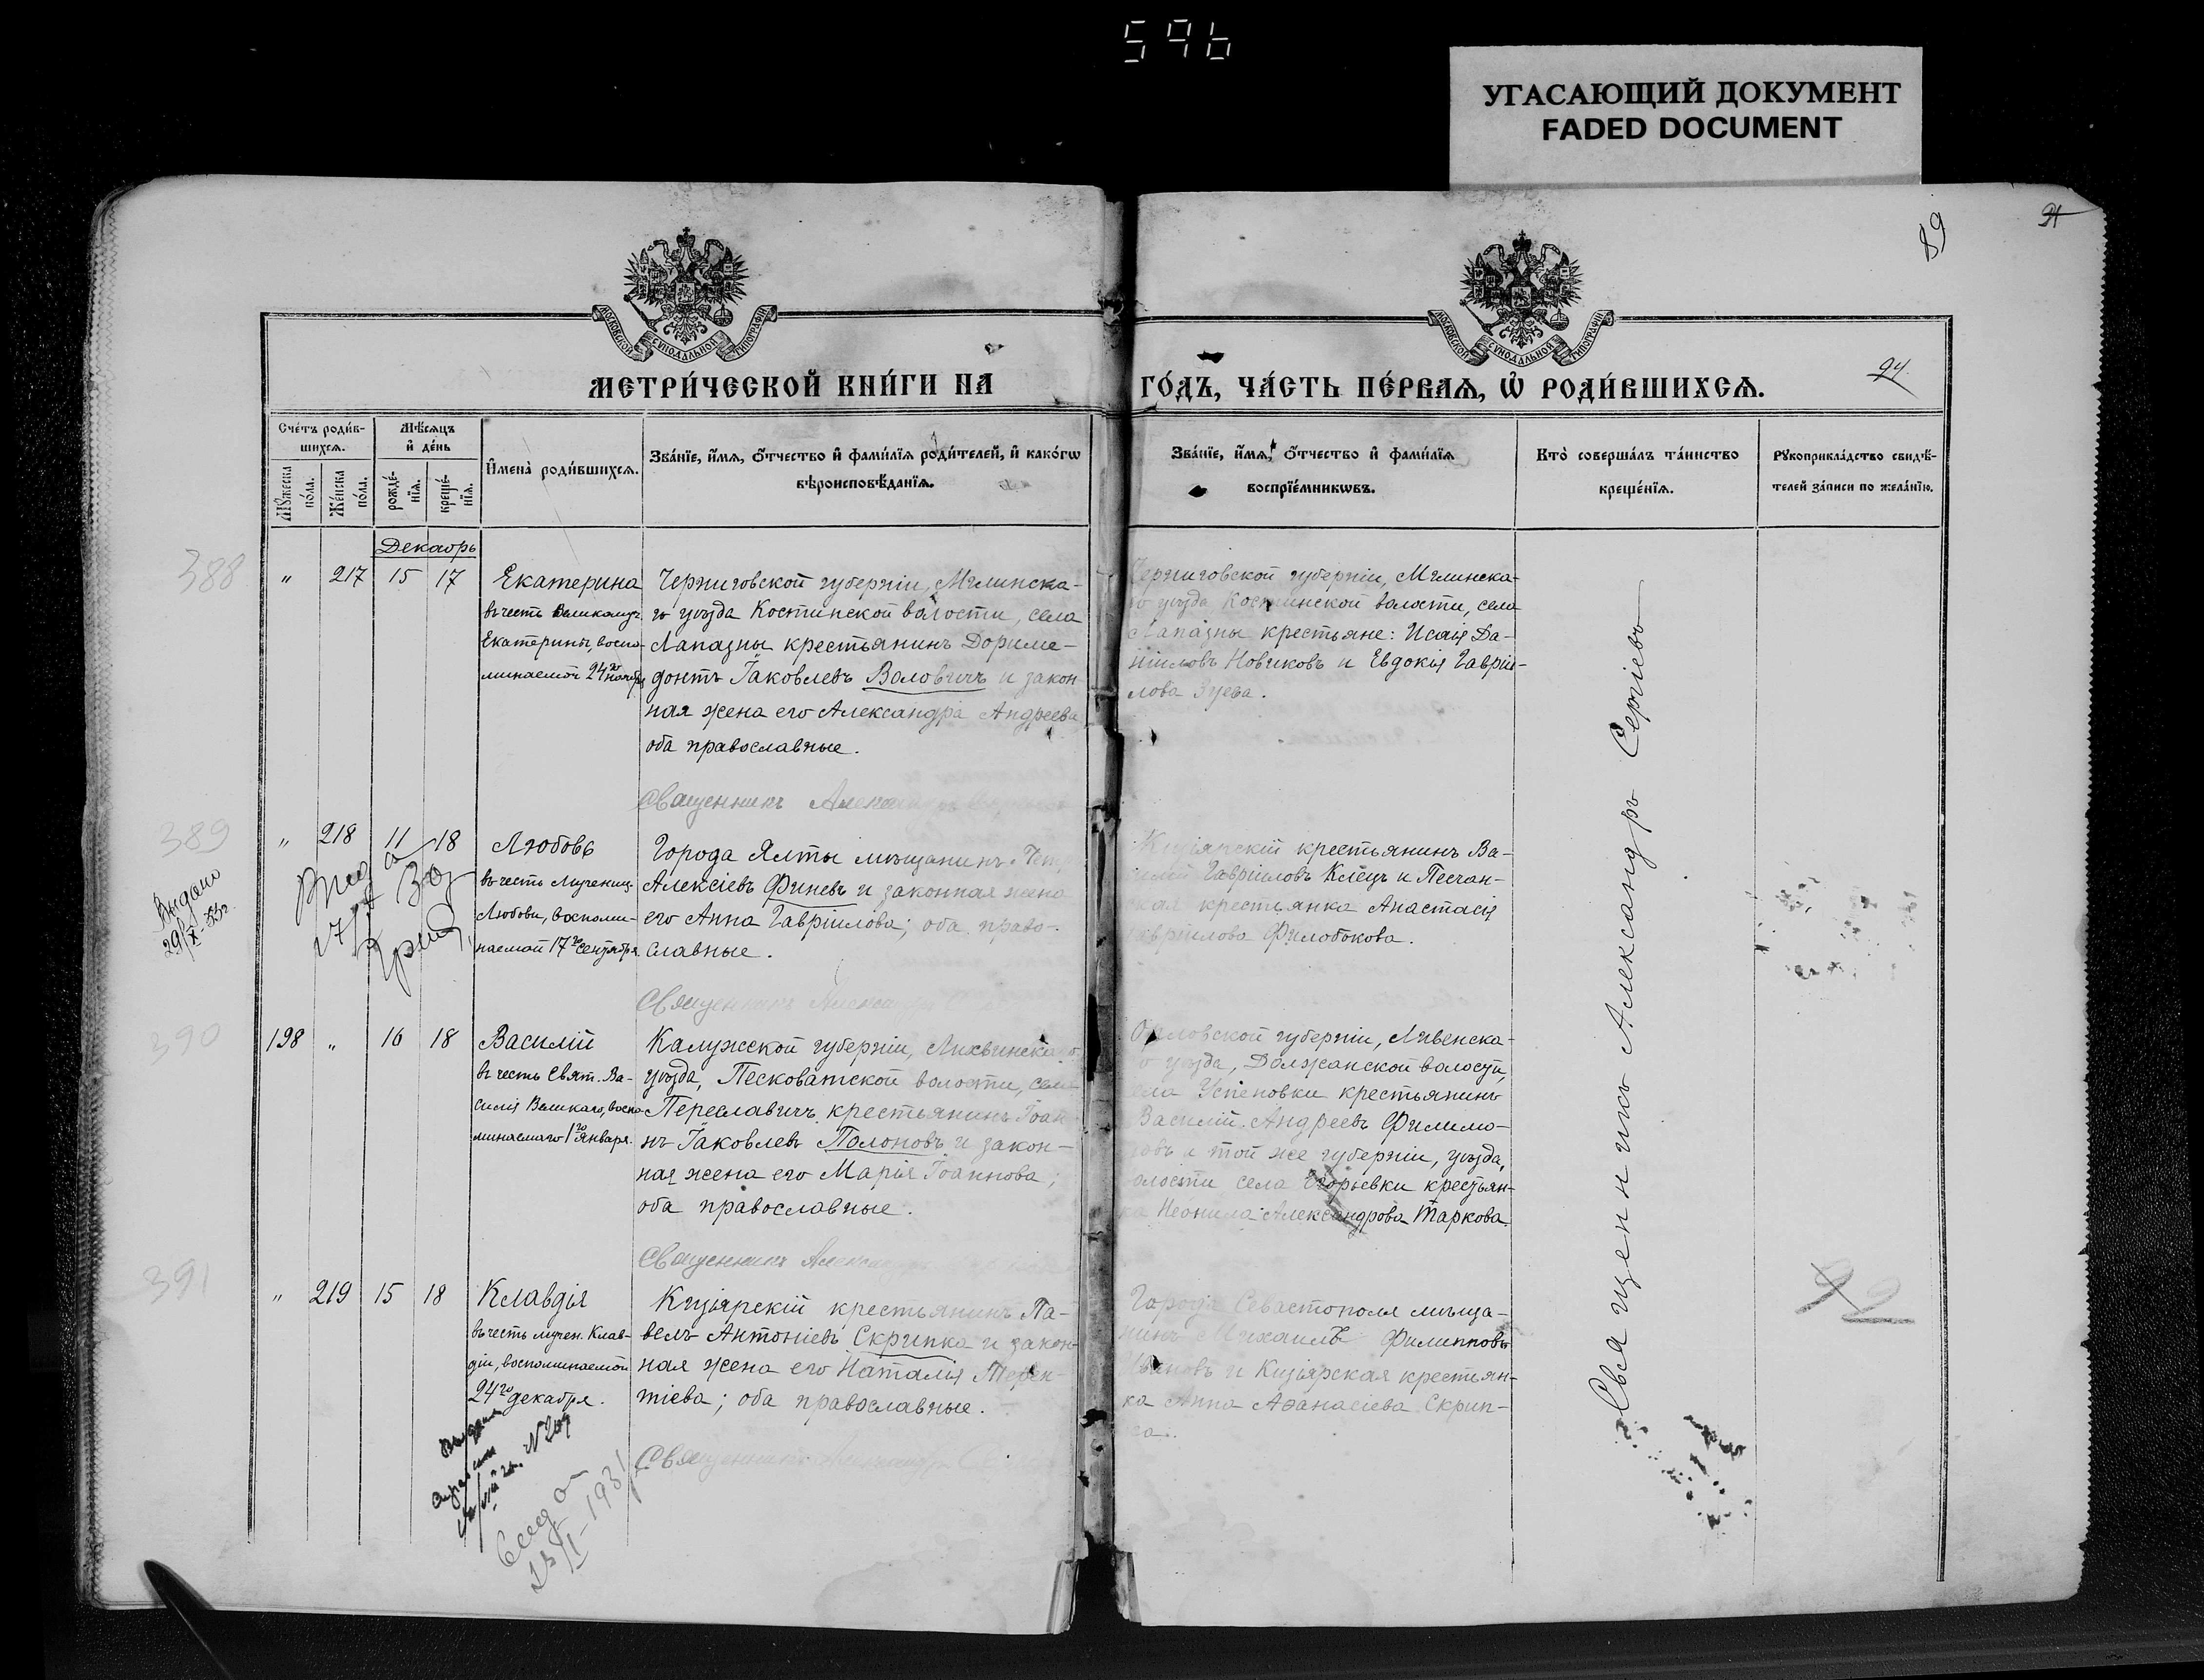 596
УГАСАЮЩИЙ ДОКУМЕНТ
FADED DOCUMENT
89
91
МОСКОВСКОЙ СУНОДАЛЬНОЙ ТИПОГРАФІИ
МОСКОВСКОЙ СУНОДАЛЬНОЙ ТИПОГРАФІИ
МЕТРИ́ЧЕСКОЙ КНИ́ГИ НА
ГО́ДЪ, ЧА́СТЬ ПЕ́РВАЯ, Ѡ РОДИ́ВШИХСЯ.
94
Сче́тъ роди́в-
шихся.
Мѣ́сяцъ
и де́нь
Му́жеска
по́ла.
Же́нска
по́ла.
рожде́-
нїя.
креще́-
нїя.
Имена̀ роди́вшихся.
Зва́нїе, и́мя, о́тчество и фами́лїя роди́телей, и како́гѡ
вѣроисповѣ́данїя.
Зва́нїе, и́мя, о́тчество и фами́лїя
воспрїе́мникѡвъ.
Кто̀ соверша́лъ та́инство
креще́нїя.
Рукоприкла́дство свидѣ́-
телей за́писи по жела́нїю.
Декабрь
388
" 217 15 17
Екатерина
въ честь Великомуч.
Екатерины, воспо-
минаемой 24го ноября
Черниговской губерніи, Мглинска-
го уѣзда Костинской волости, села
Лапазны крестьянинъ Дориме-
донтъ Іаковлевъ Воловичъ и закон-
ная жена его Александра Андреева
оба православные.
Священникъ Александръ
Черниговской губерніи, Мглинска-
го уѣзда Костинской волости, села
Лапазны крестьяне: Исаія Да-
ніиловъ Новиковъ и Евдокія Гавріи-
лова Зуева.
389
" 218 11 18
Выдано
29/X-33г.
Любовь
въ честь Мучениц.
Любови, воспоми-
наемой 17го Сентября
Города Ялты мѣщанинъ
Алексіевъ Финевъ и законная жена
его Анна Гавріилова; оба право-
славные.
Священникъ Александръ
Кизіярскій крестьянинъ Ва-
силій Гавріиловъ Клецъ и Песчан-
ская крестьянка Анастасія
Гавріилова Филобокова.
390
198 " 16 18
Василій
въ честь Свят. Ва-
силія Великаго, воспо-
минаемаго 1го Января.
Калужской губерніи, Лихвинскаго
уѣзда, Песковатской волости, села
Переславичъ крестьянинъ Іоан-
нъ Іаковлевъ Полоновъ и закон-
ная жена его Марія Іоаннова;
оба православные.
Священникъ Александръ
Орловской губерніи, Ливенска-
го уѣзда, Должанской волости,
села Успеновки крестьянинъ
Василій Андреевъ Филимо-
новъ и той же губерніи, уѣзда,
волости села Егорьевки крестьян-
ка Неонила Александрова Таркова.
391
" 219 15 18
Клавдія
въ честь мучен. Клав-
діи, воспоминаемой
24го декабря.
Кизіярскій крестьянинъ Па-
велъ Антоніевъ Скрипка и закон-
ная жена его Наталія Терен-
тіева; оба православные.
Священникъ Александръ
Города Севастополя мѣща-
нинъ Михаилъ Филипповъ
Ивановъ и Кизіярская крестьян-
ка Анна Аѳанасіева Скрип-
ка.
Священникъ Александръ Сергіевъ
92